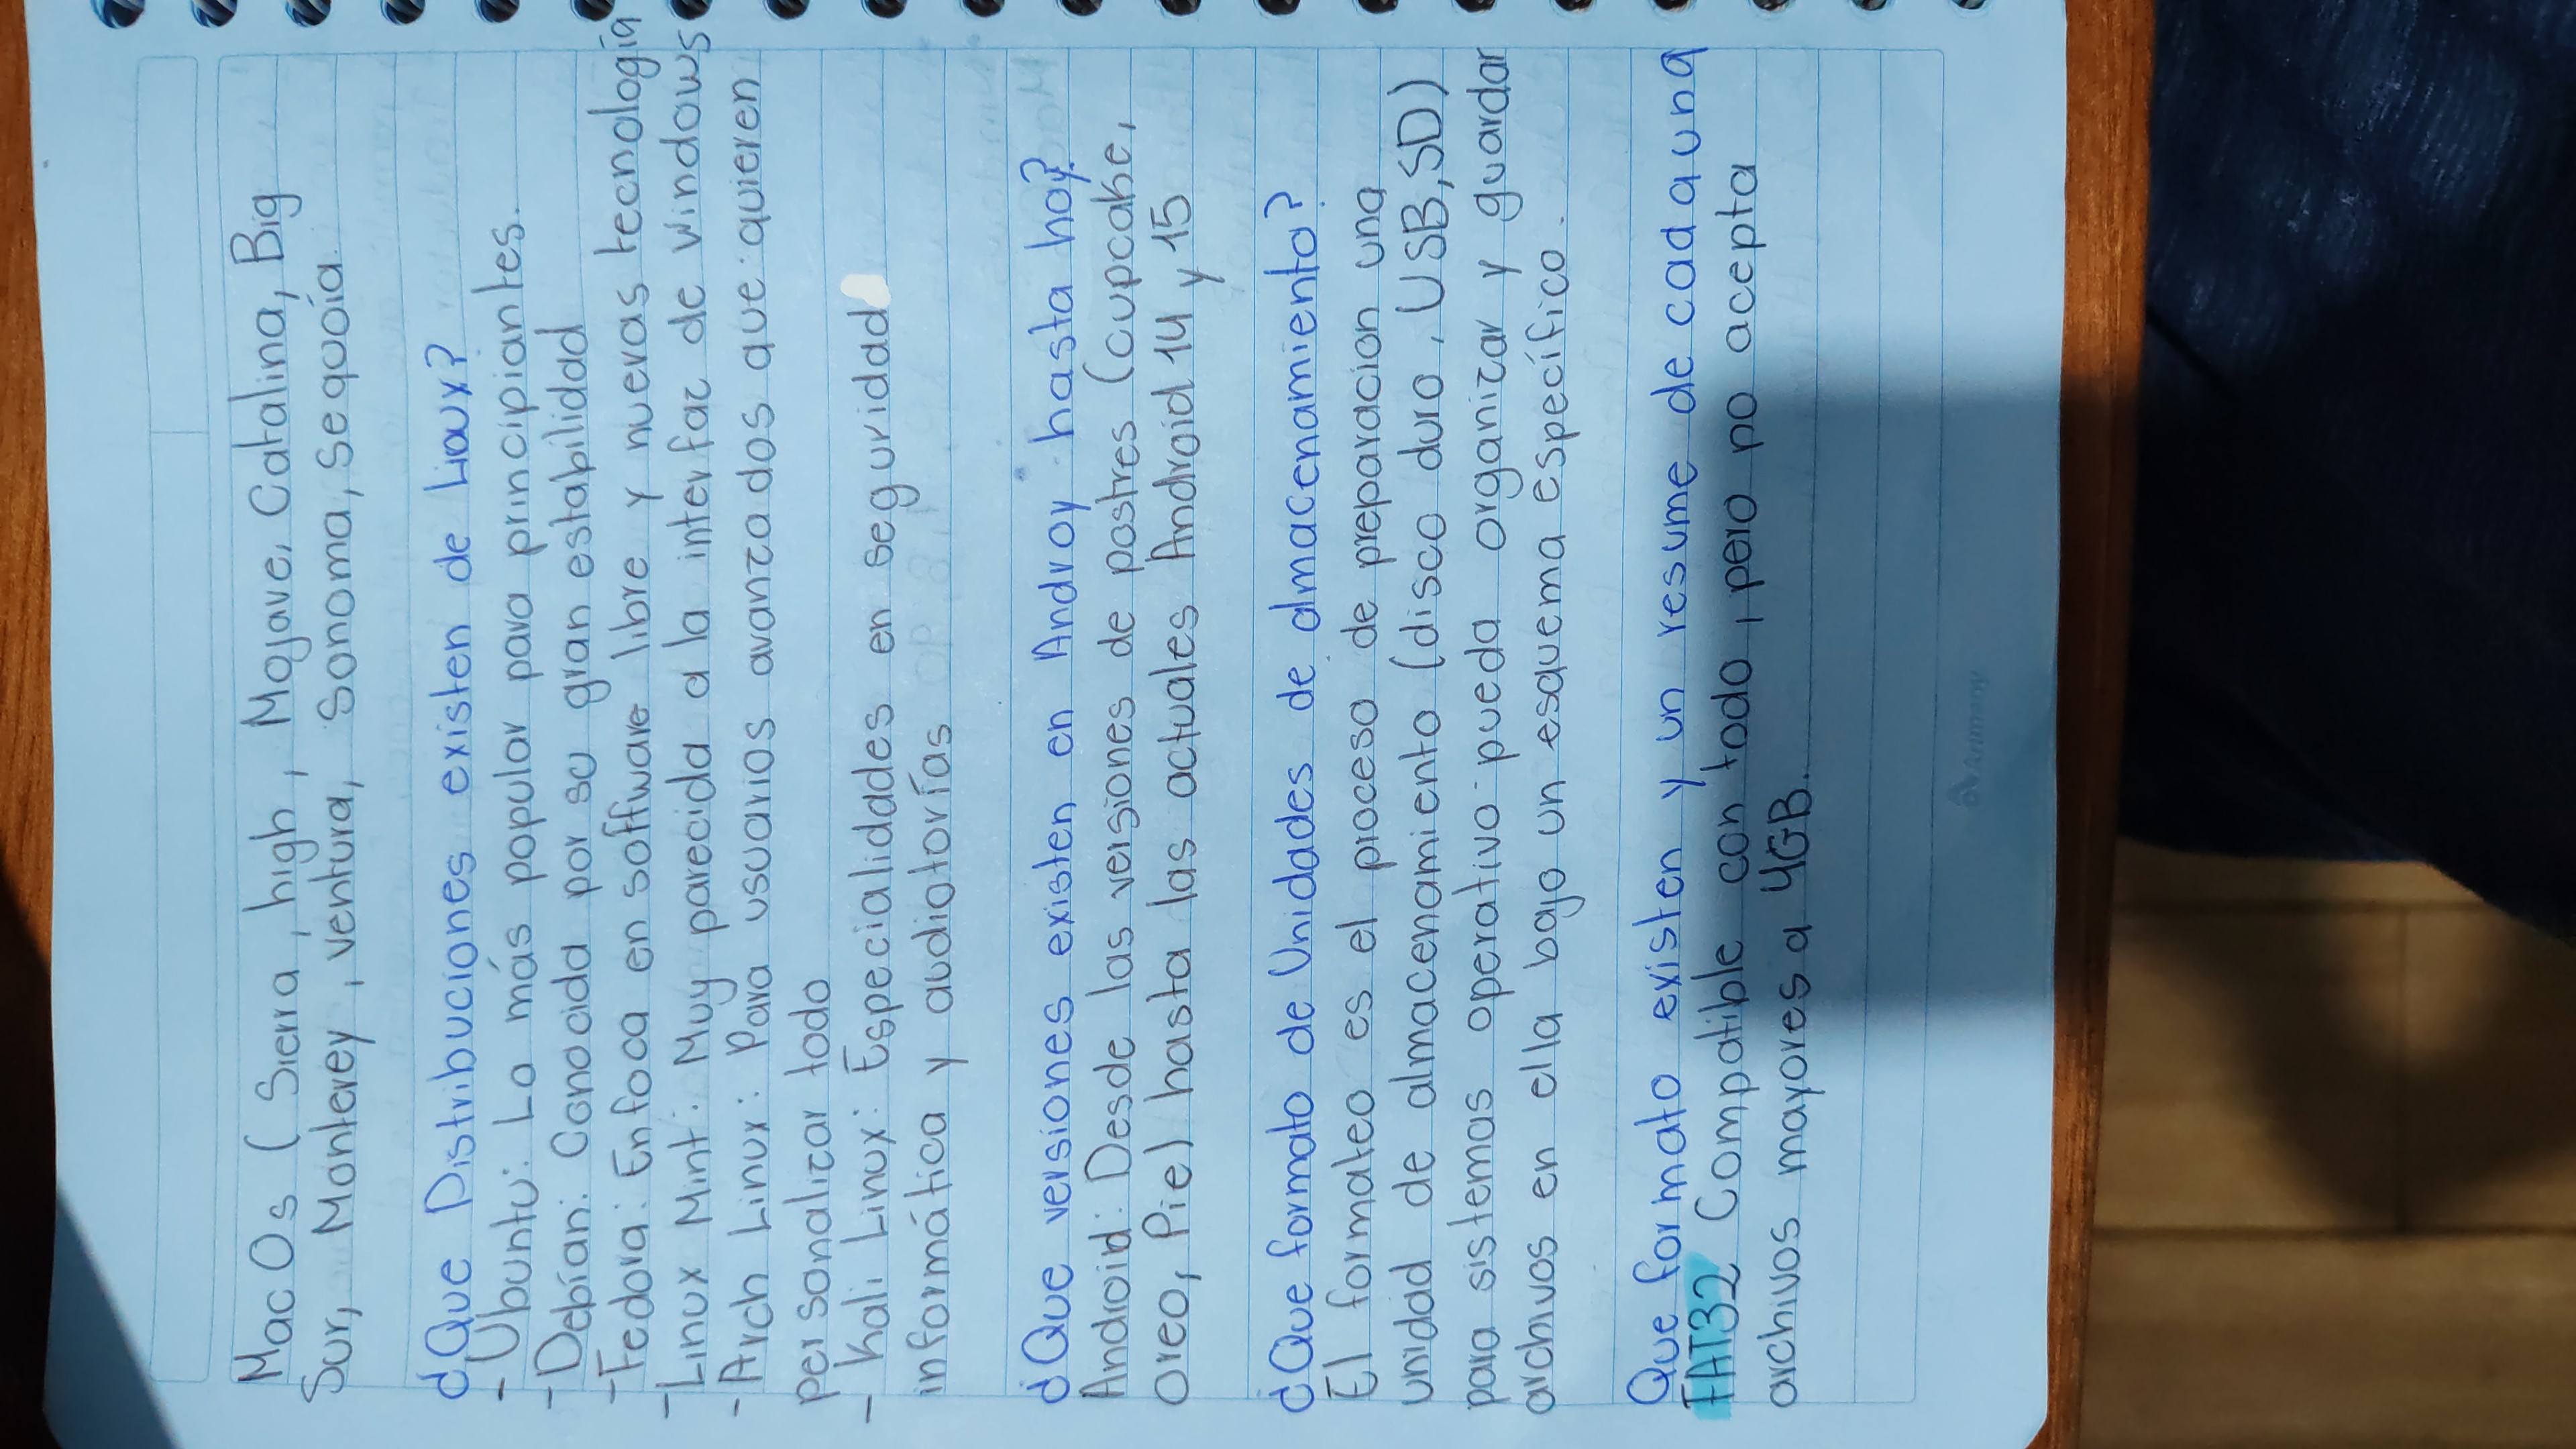 MacOs (Sierra, high, Mojave, Catalina, Big
Sur, Monterey, ventura, Sonoma, sequoia.
¿Que Distribuciones existen de Liaux?
- Ubuntu: Lo más popular para principiantes.
- Debían: Conocida por su gran estabilidad
- Fedora: Enfoca en software libre y nuevas tecnología
- Linux Mint: Muy parecida a la interfaz de windows
- Arch Linux: Para usuarios avanzados que quieren
personalizar todo
- Kali Linux: Especialidades en seguridad
informática y audiotorías
¿Que versiones existen en Androy hasta hoy?
Android: Desde las versiones de postres (cupcake,
Oreo, Pie) hasta las actuales Android 14 y 15
¿Que formato de Unidades de almacenamiento?
El formateo es el proceso de preparacion una
unidad de almacenamiento (disco duro, USB, SD)
para sistemas operativo pueda organizar y guardar
archivos en ella bajo un esquema específico.
Que formato existen y un resume de cada una
FAT32 Compatible con todo, pero no acepta
archivos mayores a 4GB.